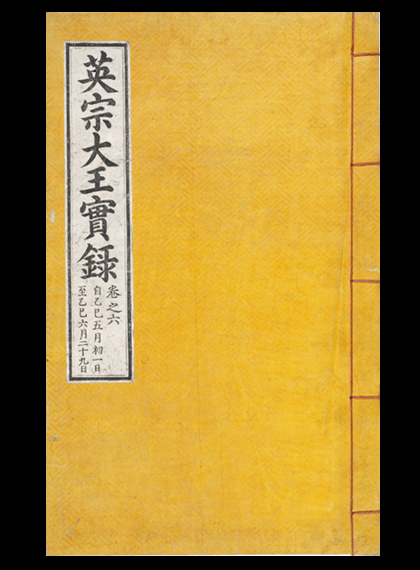 英宗大王實錄
卷之六
自乙巳五月初一日
至乙巳六月二十九日